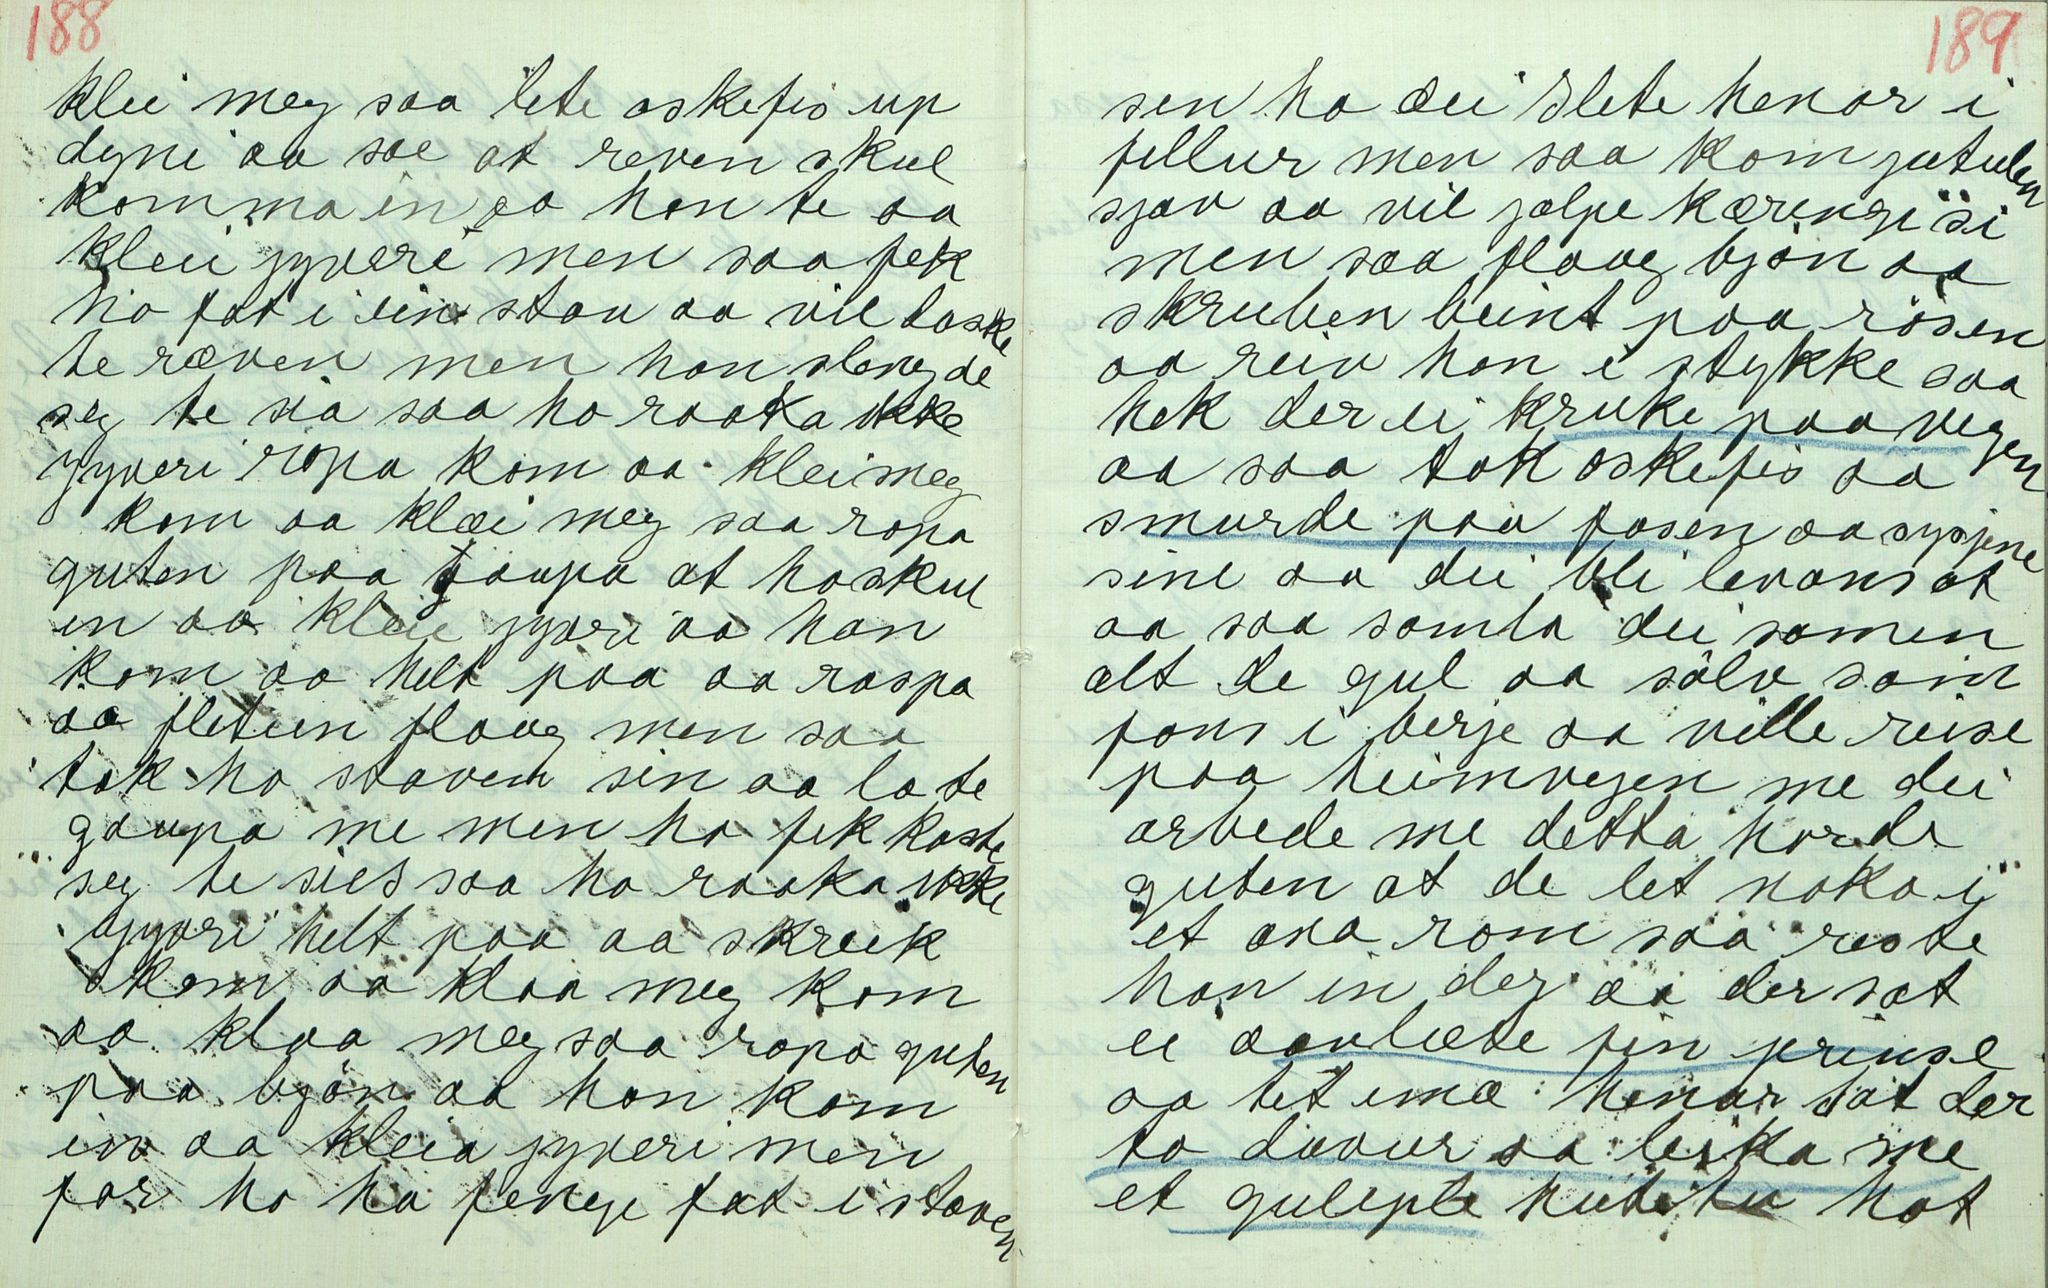 188
klei meg saa lete askefis up
dyni aa sae at reven skul
komma in aa han te aa
kleii jyveri men saa fek
ho fat i ein stav aa vil daske
te ræven men han slengde
seg te sia saa ho raaka ikke
jyveri ropa kom aa kleimeg
kom aa klæi meg saa ropa
guten paa gaupa at ho skul
in aa kleie jyveri aa han
kom aa helt paa aa raspa
aa fletun flaug men saa
tok ho staven sin aa la te
gaupa me men ho fek kaste
seg te sies saa ho raaka ikke
jyveri helt paa aa skreik
kom aa klaa meg kom
aa klaa meg saa ropa guten
paa bjøn aa han kom
in aa kleia jyveri men
før ho ha fenge fat i staven
189
sen ha dei slete henar i
fillur men saa kom jutulen
sjøv aa vil jælpe kærengi si
men saa flaug bjøn aa
skruben beint paa røsen
aa reiv han i stykke saa
hek der ei kruke paa vegen
aa saa tok askefis aa
smurde paa fosen aa sysjene
sine aa dei bli levans at
aa saa samla dei samen
alt de gul aa sølv som
fans i berje aa ville reise
paa heimvegen me dei
arbede me detta hørde
guten at de let noko i
et ana rom saa reste
han in der aa der sat
ei aavlete fin prinse
aa tet imæ henar sat der
to duvur aa leika me
et guleple hutetu hat